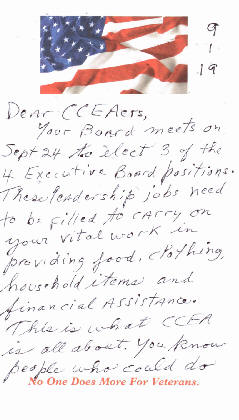 9
1
19
Dear CCEAers,
Your Board meets on
Sept 24 to elect 3 of the
4 Executive Board positions.
These leadership jobs need
to be filled to carry on
your vital work in
providing food, clothing,
household items and
financial assistance.
This is what CCEA
is all about. You know
people who could do
No One Does More For Veterans.